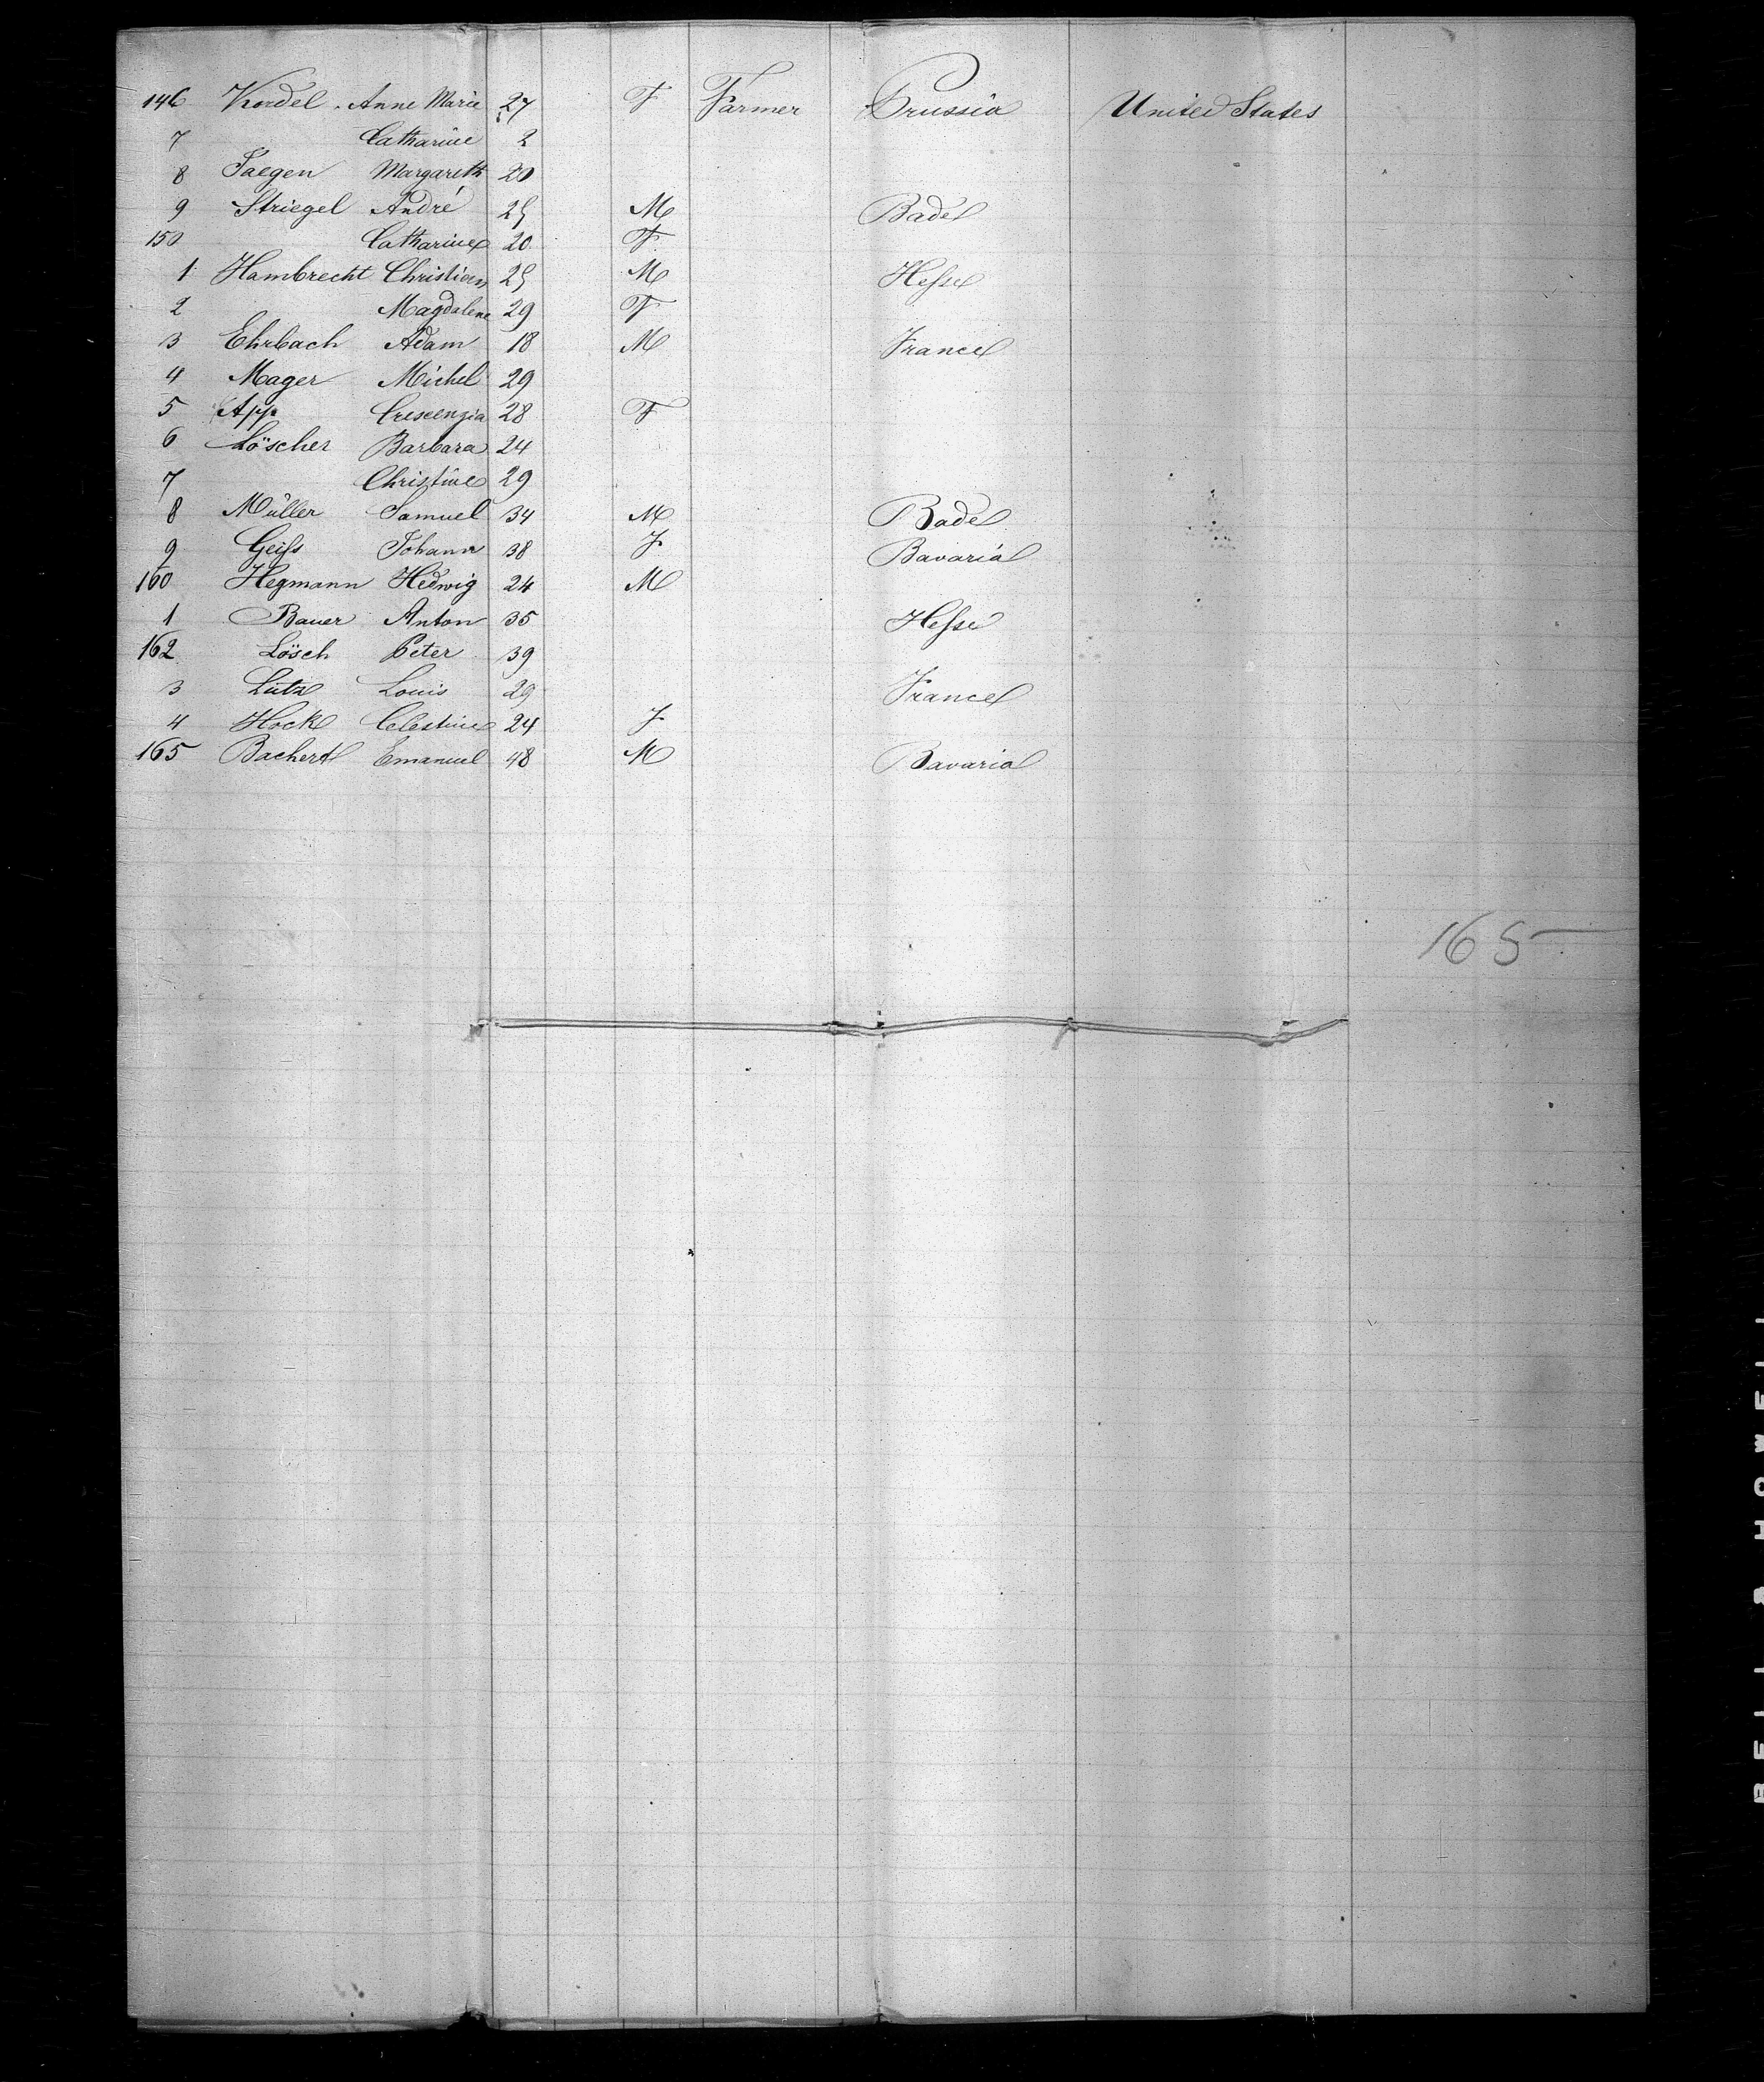 146 Kordel Anne Marie 27 F Farmer Prussia United States
7 Catharine 2
8 Jaegen Margareth 20
9 Striegel André 25 M Bade
150 Catharine 20 F
1 Hambrecht Christian 25 M Hesse
2 Magdalene 29 F
3 Ehrbach Adam 18 M France
4 Mager Michel 29
5 App Crescenzia 28 F
6 Löscher Barbara 24
7 Christine 29
8 Müller Samuel 34 M Bade
9 Geiss Johann 38 F Bavaria
160 Hegmann Hedwig 24 M
1 Bauer Anton 35 Hesse
162 Lösch Peter 39
3 Lutz Louis 29 France
4 Hock Celestine 24 F
165 Bachert Emanuel 48 M Bavaria
165
BELL & HOWELL